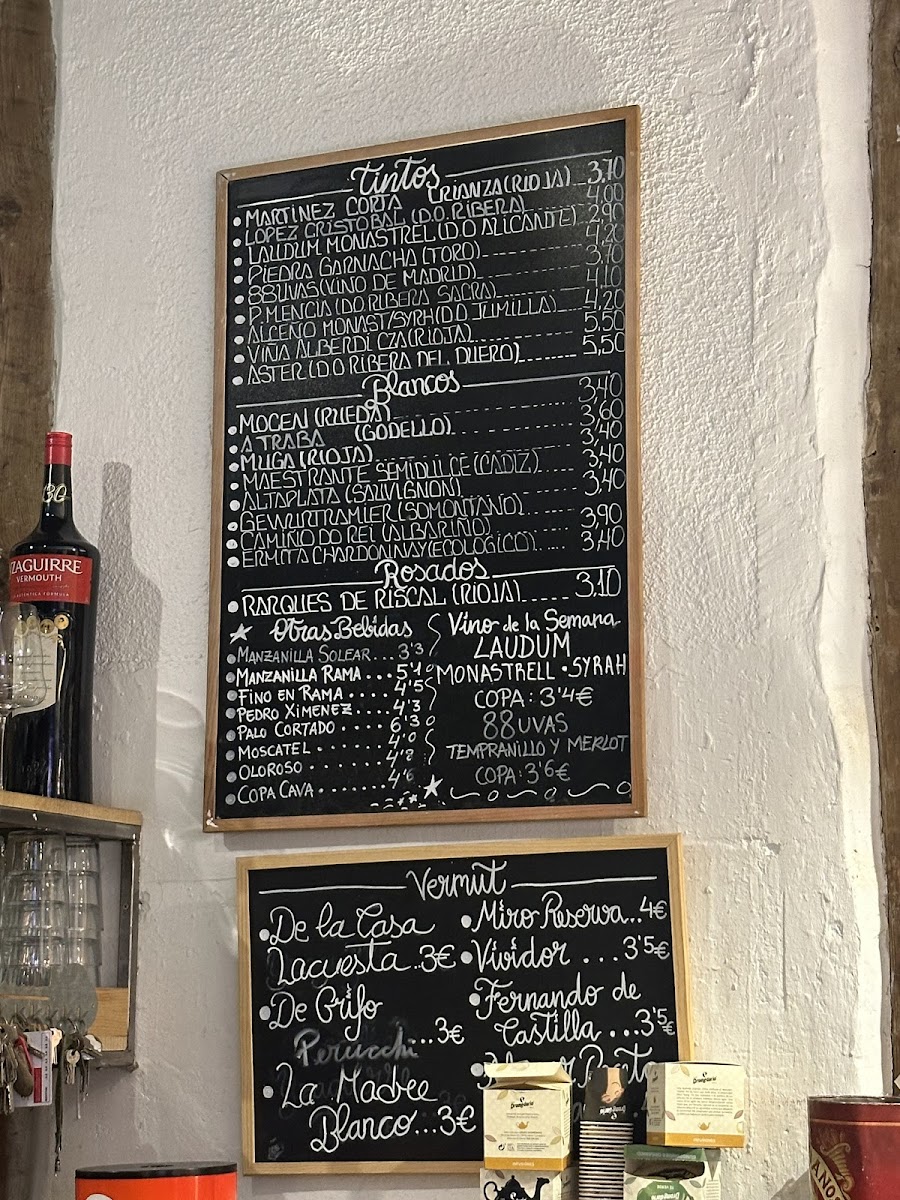 Tintos
MARTINEZ CORTA CRIANZA (RIOJA) 3,70
LOPEZ CRISTOBAL (D.O. RIBERA) 4,00
LAUDUM MONASTREL (D.O ALICANTE) 2,90
PIEDRA GARNACHA (TORO) 4,20
88UVAS (VINO DE MADRID) 3,70
P.MENCIA (DO RIBERA SACRA) 4,10
ALCEÑO MONAST/SYRH (D.O JUMILLA) 4,20
VIÑA ALBERDI CZA (RIOJA) 5,50
ASTER (D.O RIBERA DEL DUERO) 5,50
Blancos
MOCEN (RUEDA) 3,40
A TRABA (GODELLO) 3,60
MUGA (RIOJA) 3,40
MAESTRANTE SEMIDULCE (CADIZ) 3,40
ALTAPLATA (SAUVIGNON) 3,40
GEWURTRAMIER (SOMONTANO)
CAMIÑO DO REI (ALBARIÑO) 3,90
ERMITA CHARDONNAY (ECOLOGICO) 3,40
Rosados
RARQUES DE RISCAL (RIOJA) 3,10
Otras Bebidas
MANZANILLA SOLEAR... 3'3
MANZANILLA RAMA... 5'1
FINO EN RAMA.... 4'5
PEDRO XIMENEZ.... 4'3
PALO CORTADO..... 6'3
MOSCATEL...... 4'0
OLOROSO...... 4'8
COPA CAVA....... 4'6
Vino de la Semana
LAUDUM
MONASTRELL • SYRAH
COPA: 3'4€
88UVAS
TEMPRANILLO Y MERLOT
COPA: 3'6€
Vermut
De la Casa
Lacuesta..3€
De Grifo
Perucchi ...3€
La Madre
Blanco...3€
Miro Reserva...4€
Vividor ...3'5€
Fernando de
Castilla ...3'5€
ZAGUIRRE
VERMOUTH